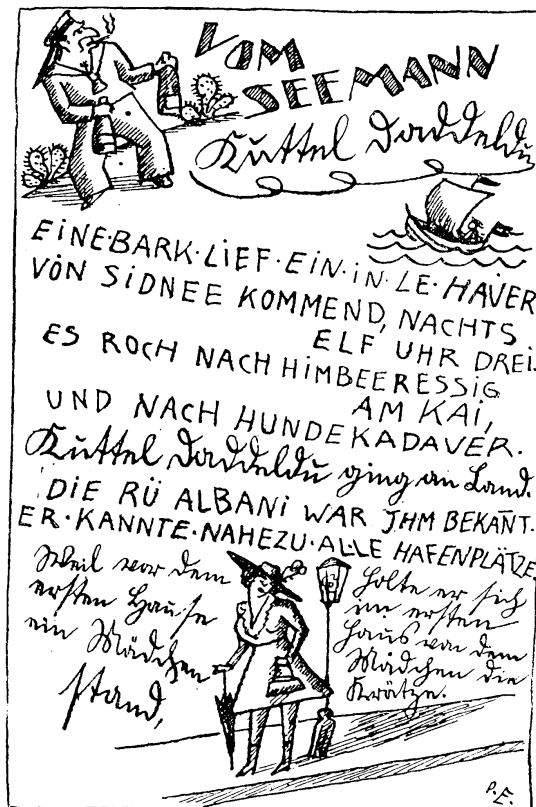 VOM
SEEMANN
Kuttel Daddeldu
EINE·BARK·LIEF·EIN·IN·LE·HAVER
VON SIDNEE KOMMEND, NACHTS
ELF UHR DREI.
ES ROCH NACH HIMBEERESSIG
AM KAI,
UND NACH HUNDEKADAVER.
Kuttel Daddeldu ging an Land.
DIE RÜ ALBANI WAR JHM BEKAN̄T.
ER·KANNTE·NAHEZU·ALLE HAFENPLÄTZE.
Weil vor dem
ersten Hause
ein Mädchen
stand,
holte er sich
im ersten
Haus von dem
Mädchen die
Krätze.
P.E.